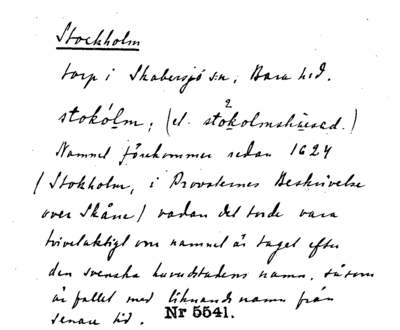 Stockholm
torp i Skabersjö sn; Bara hd.
stokólm; (el. stokolmshused.)
Namnet förekommer redan 1624
(Stokholm, i Provsternes Beskrivelse
over Skåne) vadan det torde vara
tvivelaktigt om namnet är taget efter
den svenska huvudstadens namn, såsom
är fallet med liknande namn från
senare tid.
Nr 5541.